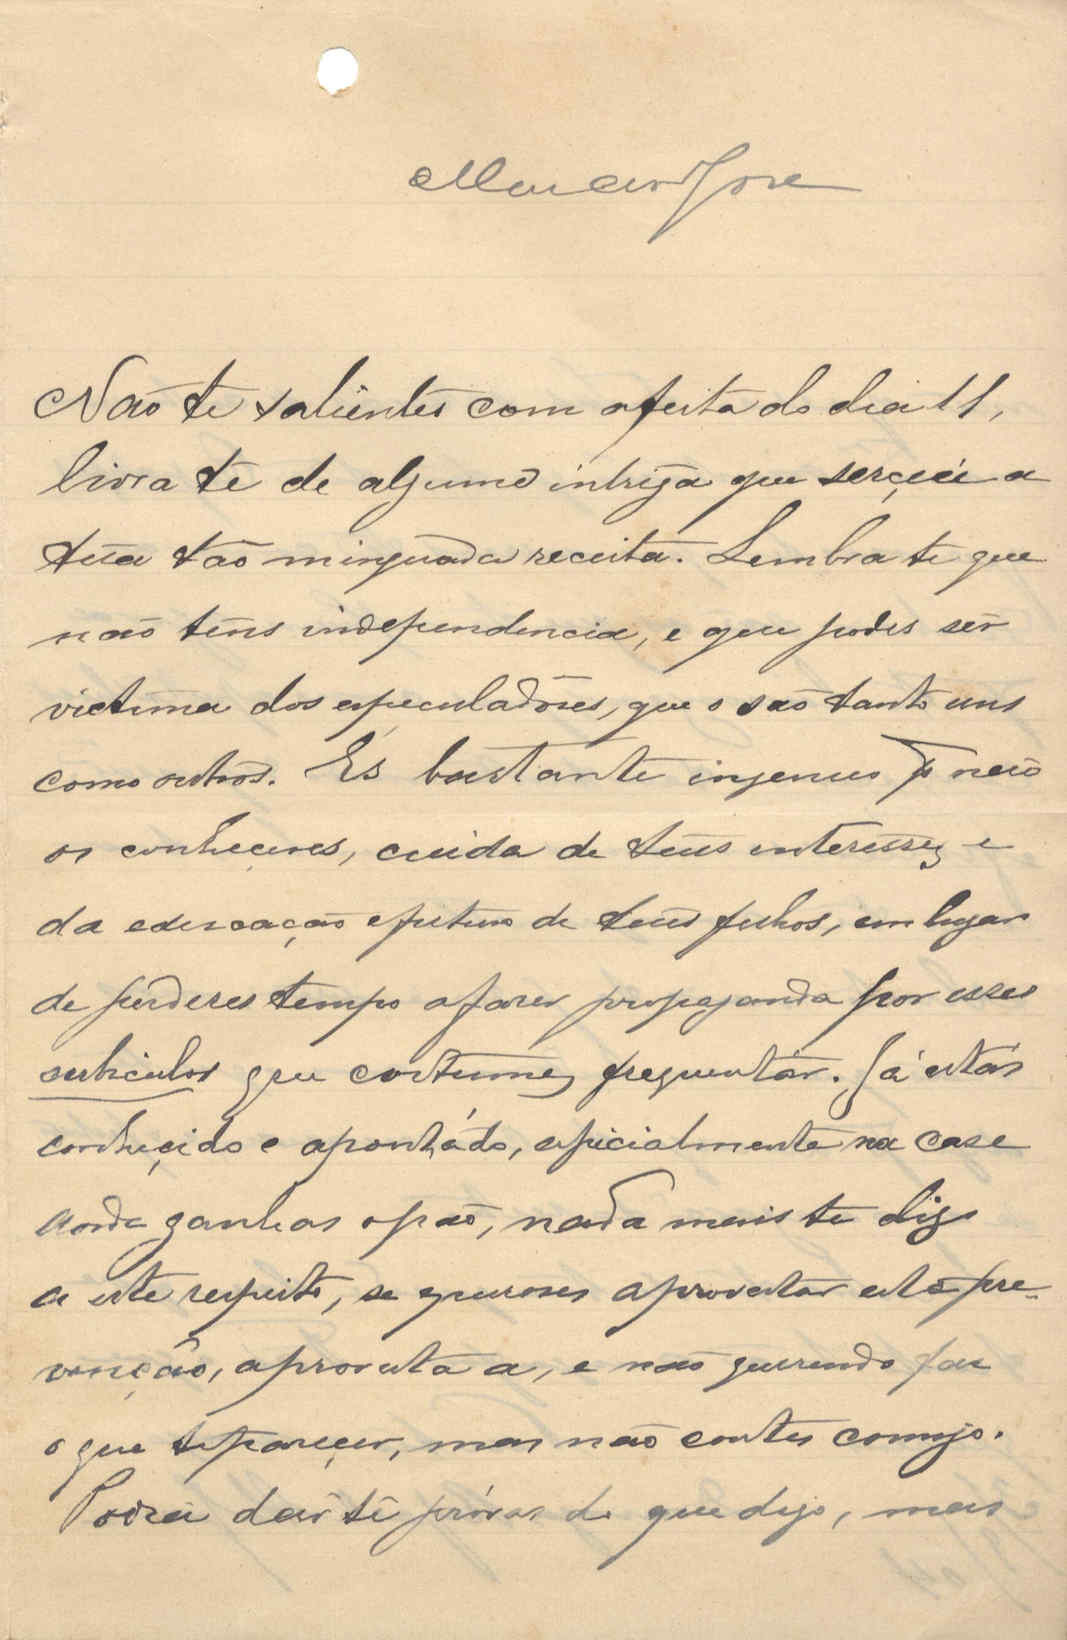 Não te salientes com a festa do dia 11,
livra te de alguma intriga que serceie a
tua tão minguada receita. Lembra te que
não tens independencia, e que podes ser
victima dos especuladores, que o são tanto uns
como outros. És bastante ingenuo não
os conheceres, cuida de teus interesses e
da educação e futuro de teus filhos, em lugar
de perderes tempo a fazer propaganda por esses
cubiculos que costumes frequentár. Já estás
conhecido e apontádo, especialmente na casa
aonde ganhas o pão, nada mais te digo
a este respeito, se quiseres aproveitar esta pre-
venção, aproveita a, e não querendo faz
o que te pareçer, mas não contes comigo.
Podia dar te próvas do que digo, mas